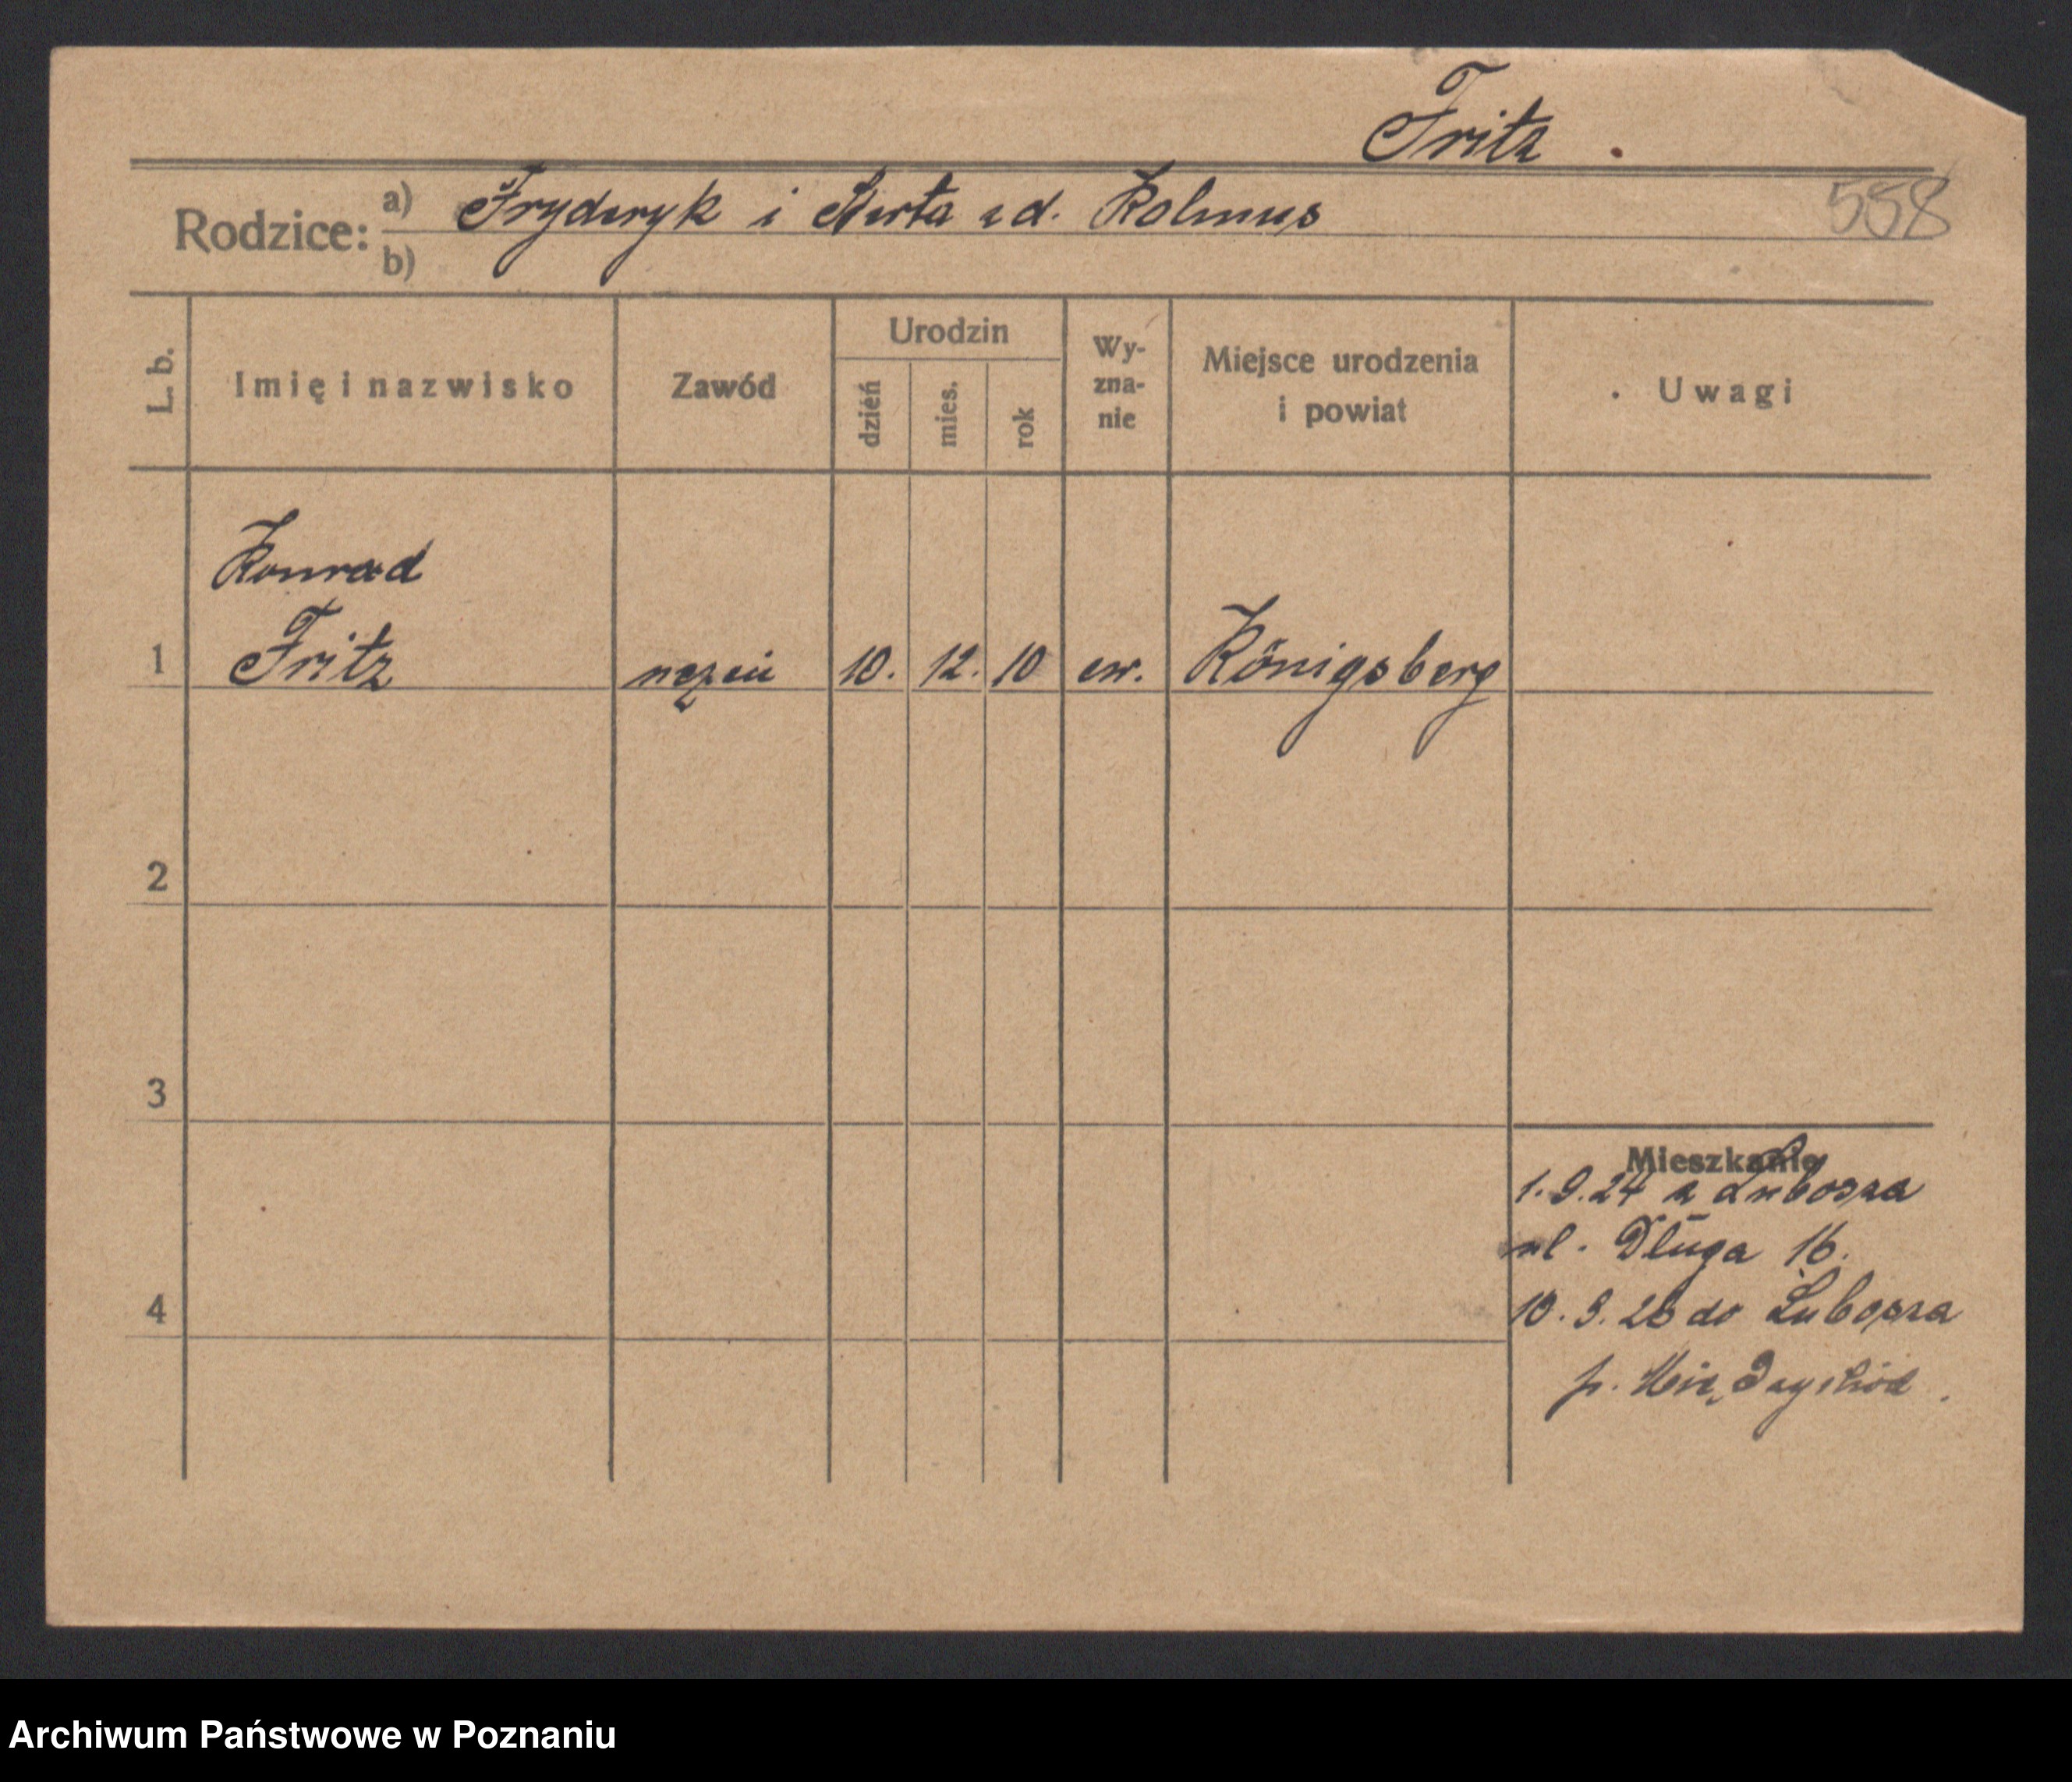 Fritz .
558
Rodzice:
a) Fryderyk i Kolmus
b)
L. b.
Imię i nazwisko
Zawód
Urodzin
dzień
mies.
rok
Wy-
zna-
nie
Miejsce urodzenia
i powiat
Uwagi
Konrad
1 Fritz uczeń 10. 12. 10 ew. Königsberg
2
3
4
Mieszkanie
1.9.24 z Lubosza
ul. Długa 16.
10. do Lubosza
p. Międzychód.
Archiwum Państwowe w Poznaniu